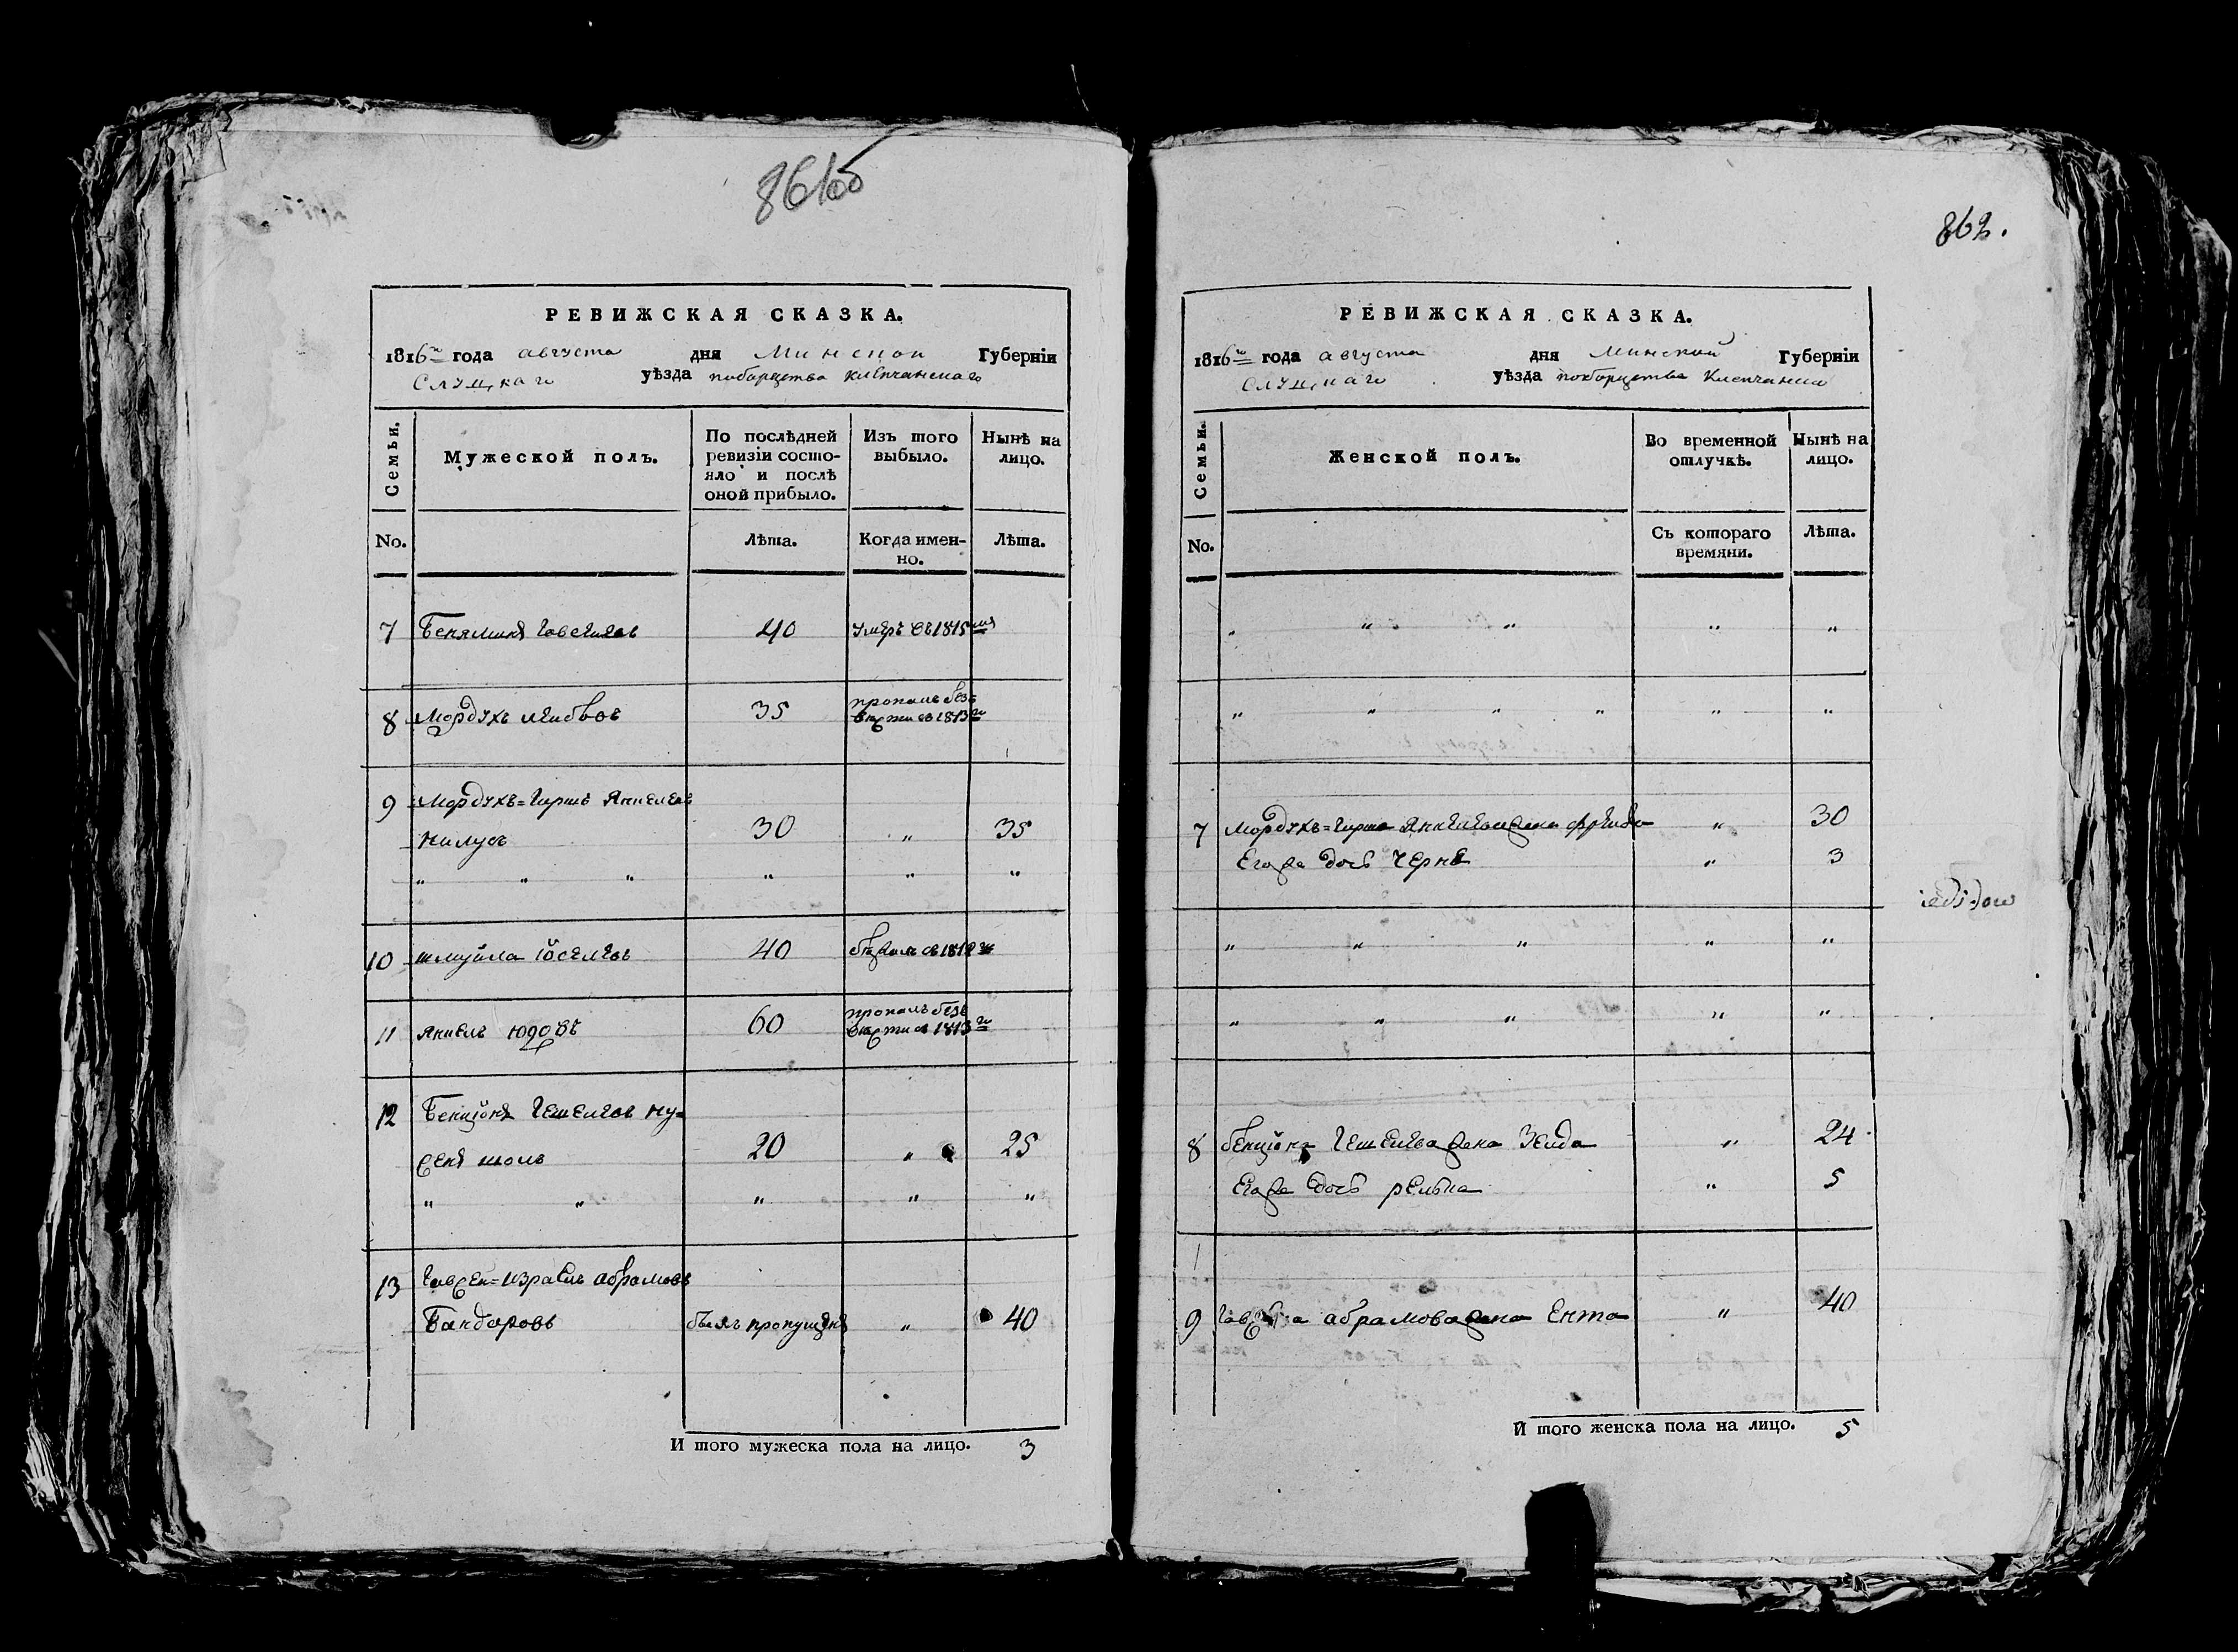 861об
РЕВИЖСКАЯ СКАЗКА.
1816го года августа дня Минской Губерніи
Слуцкаго уѣзда поборцтва Клепчанскаго
Семьи.
Мужеской полъ.
По послѣдней ревизіи состояло и послѣ оной прибыло.
Изъ того выбыло.
Нынѣ на лицо.
No.
Лѣта.
Когда именно.
Лѣта.
7 Беняминъ 40 умеръ въ 1815мъ
8 Мордухъ Лейбовъ 35 пропалъ безъ
вѣсти въ 1813го
9 Мордухъ=Гиршъ Янкелевъ
30 " 35
" " " " " "
10 Шмуйла Іоселевъ 40 бѣжалъ въ 1812
11 Янкель Юдовъ 60 пропалъ безъ
вѣсти въ 1813го
12 Бенціонъ Гешелевъ
20 " 25
" " " " "
13 Израель Абрамовъ
Бандаровъ былъ пропущенъ " 40
И того мужеска пола на лицо. 3
862.
РЕВИЖСКАЯ СКАЗКА.
1816го года августа дня Минской Губерніи
Слуцкаго уѣзда поборцтва
Семьи.
Женской полъ.
Во временной отлучкѣ.
Нынѣ на лицо.
No.
Съ котораго времяни.
Лѣта.
" " " " "
" " " " " "
7 Мордухъ=Гирша Янкелева жена Фрейда " 30
Егоже дочь Черна " 3
" " " " "
" " " " "
8 Бенціона Гешелева жена Зелда " 24
Егоже дочь Рельна " 5
9 Абрамова жена Ента " 40
И того женска пола на лицо. 5